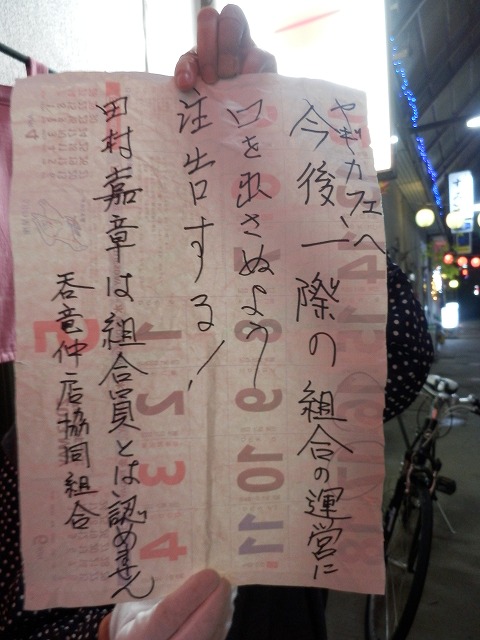 ヤギカフェへ
今後一際の組合の運営に
口を出さぬよう
注出する!
田村嘉章は組合員とは認めません
呑竜仲店協同組合